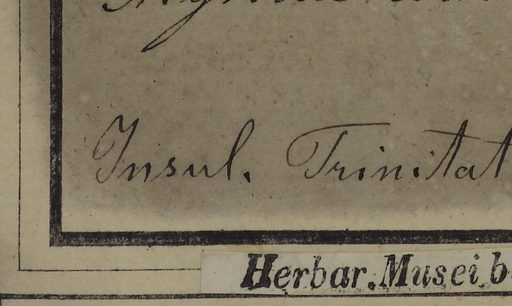 Insul. Trinitat
Herbar. Musei b